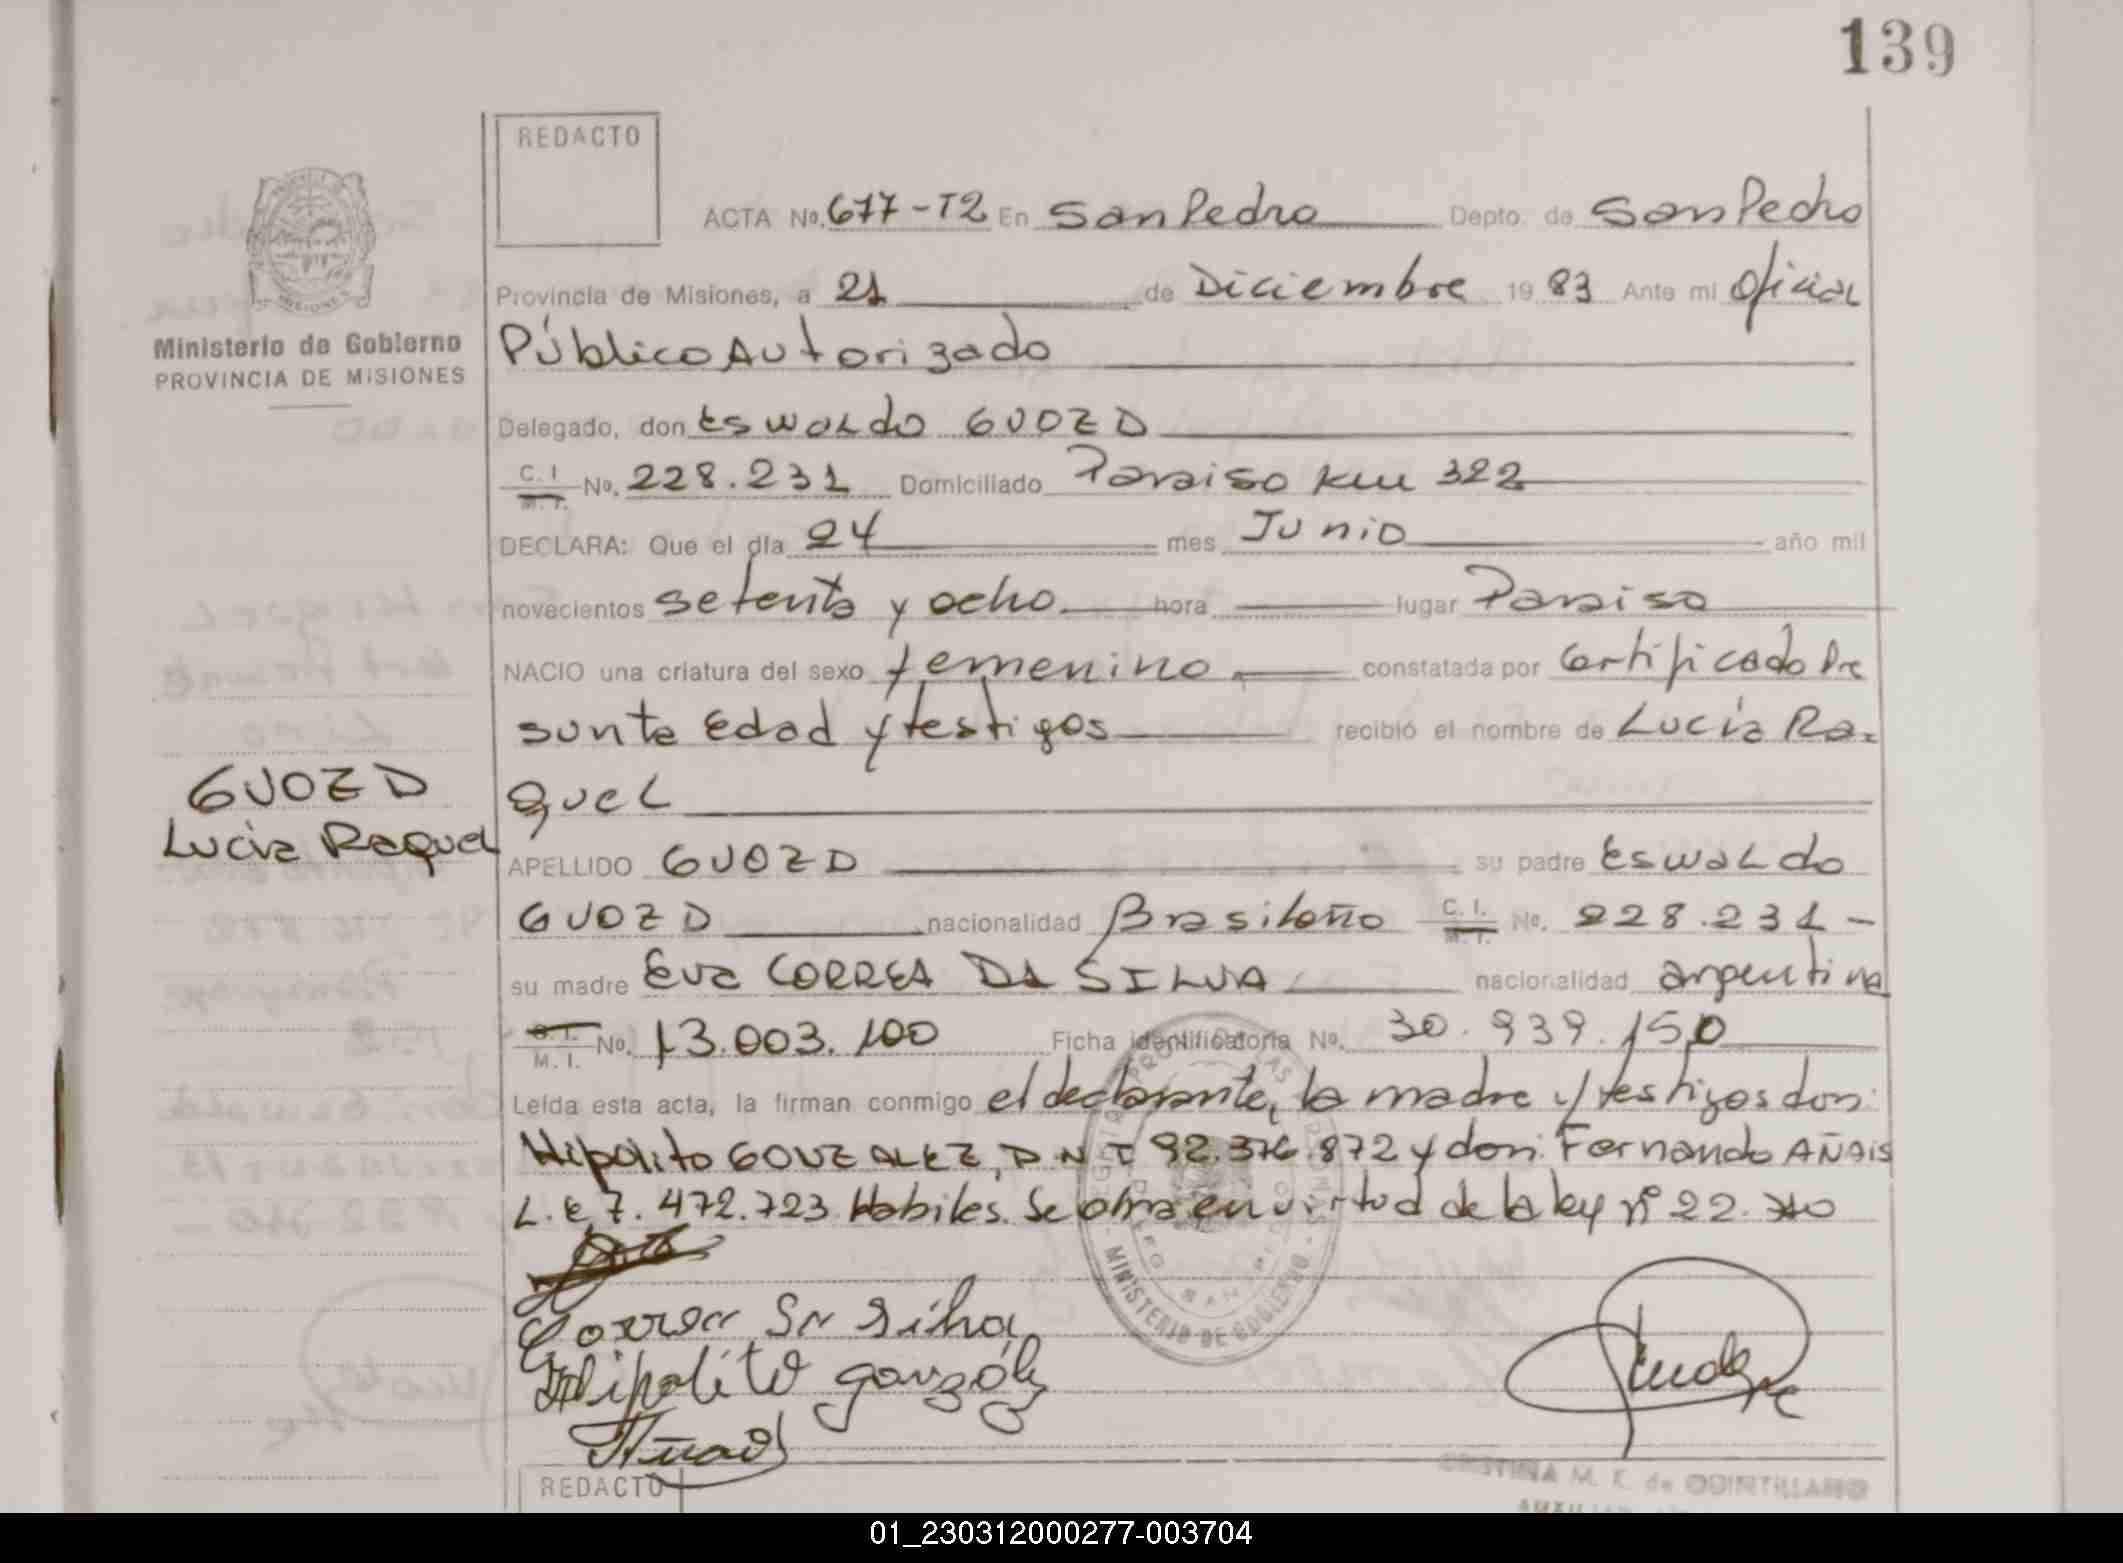 139
REDACTO
ACTA No. 677-T2 En San Pedro Depto. de San Pedro
Provincia de Misiones, a 21 de Diciembre 1983 Ante mi Oficial
Ministerio de Gobierno
PROVINCIA DE MISIONES
Público Autorizado
Delegado, don Eswaldo GUOZD
C. I. M. I. No. 228.231 Domiciliado Paraiso Km 322
DECLARA: Que el día 24 mes Junio año mil
novecientos setenta y ocho hora lugar Paraiso
NACIO una criatura del sexo femenino constatada por Certificado Pre
sunta Edad y testigos recibió el nombre de Lucía Ra-
quel
GUOZD
Lucia Raquel
APELLIDO GUOZD su padre Eswaldo
GUOZD nacionalidad Brasileño C. I. M. I. No. 228.231 -
su madre Eva CORREA DA SILVA nacionalidad argentina
C. I. M. I. No. 13.003.100 Ficha identificatoria No. 30.939.150
Leída esta acta, la firman conmigo el declarante, la madre y testigos don:
Hipolito GONZALEZ, D N I 92.376.872 y don: Fernando AÑAIS
L.E 7.472.723 Habiles. Se obra en virtud de la ley nº 22.
MINISTERIO DE GOBIERNO
Correa Da Silva
Hipolito
REDACTO
CRISTINA M. K. de QUINTILLANO
01_230312000277-003704